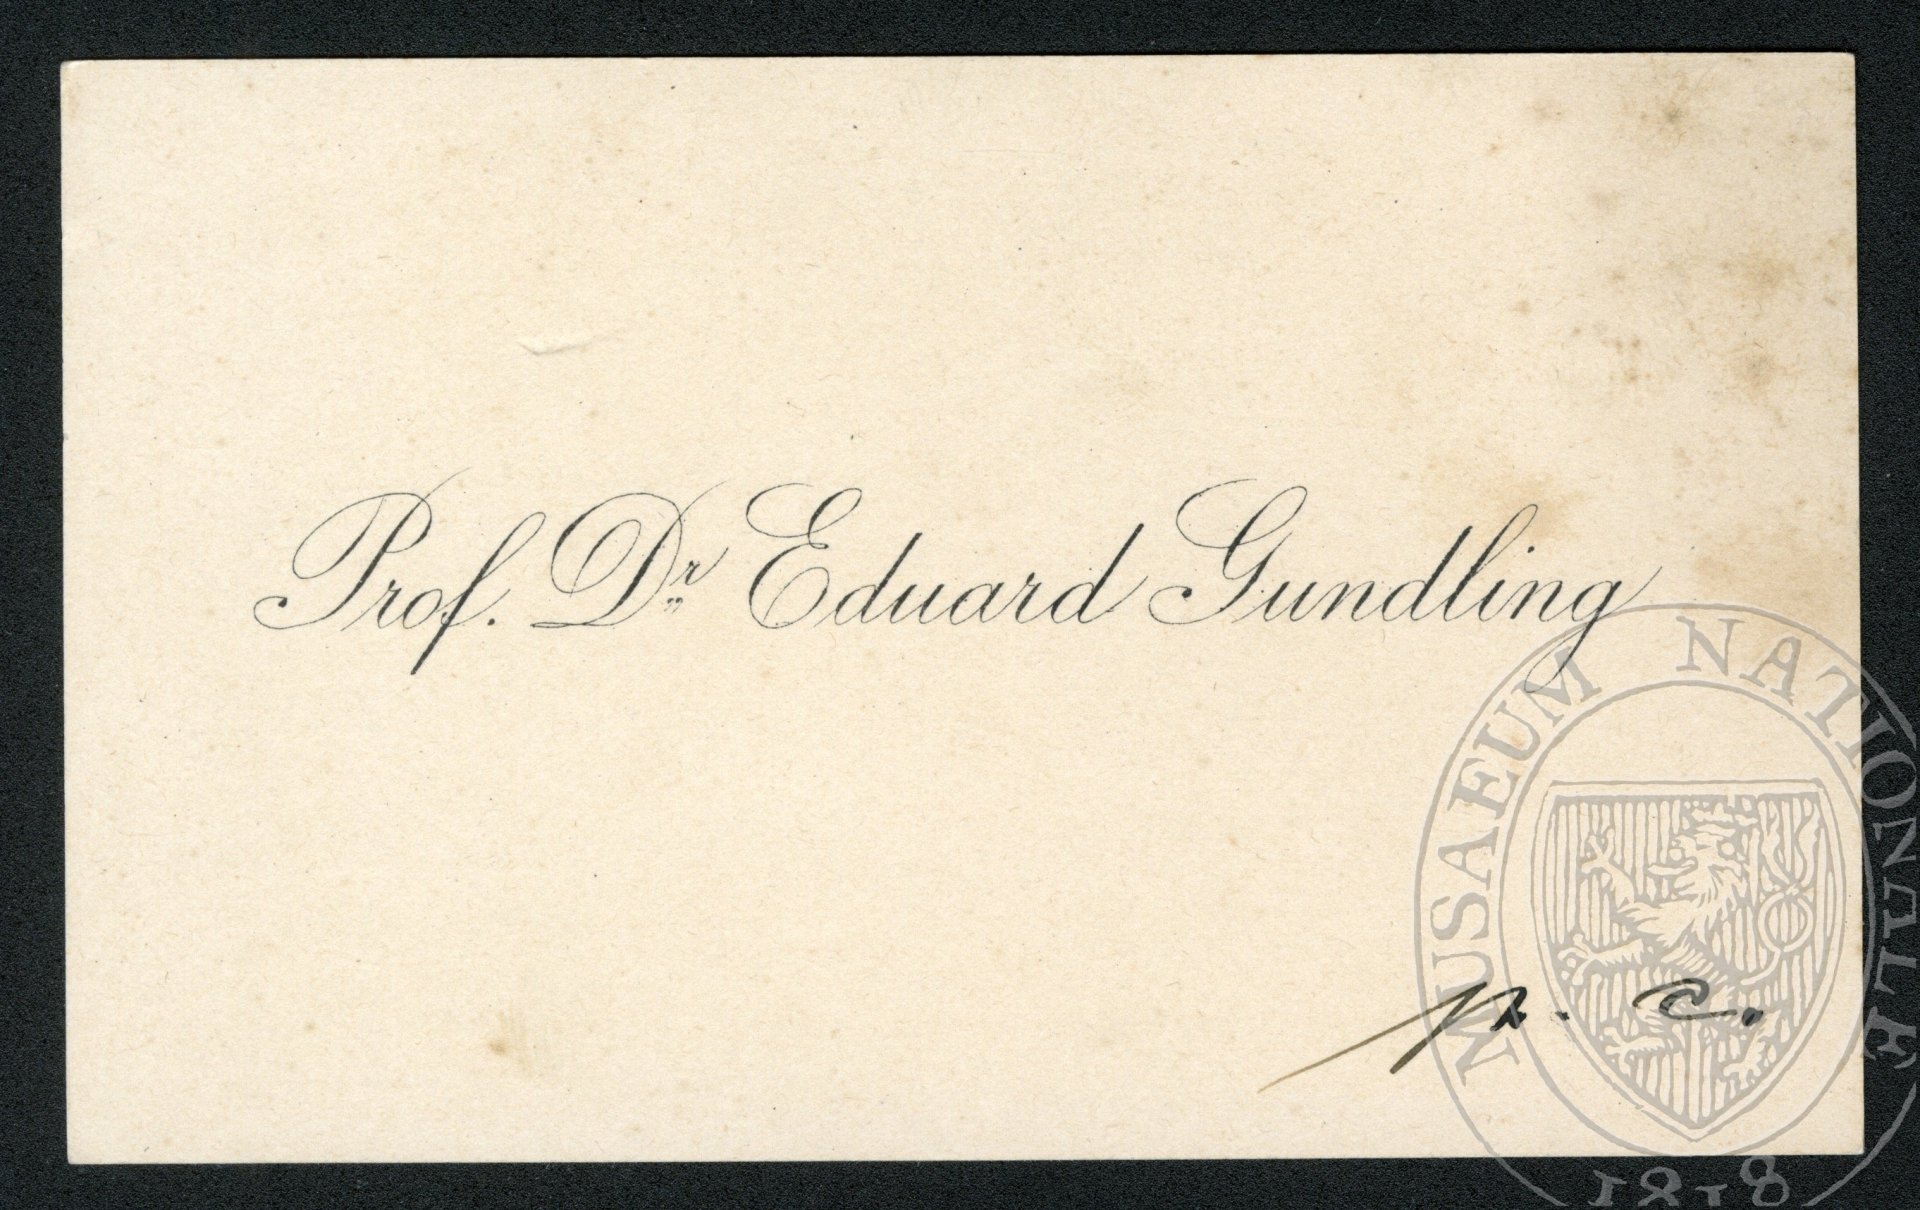 Prof. Dr. Eduard Gundling
p. c.
MUSAEUM NATIONALE
1818